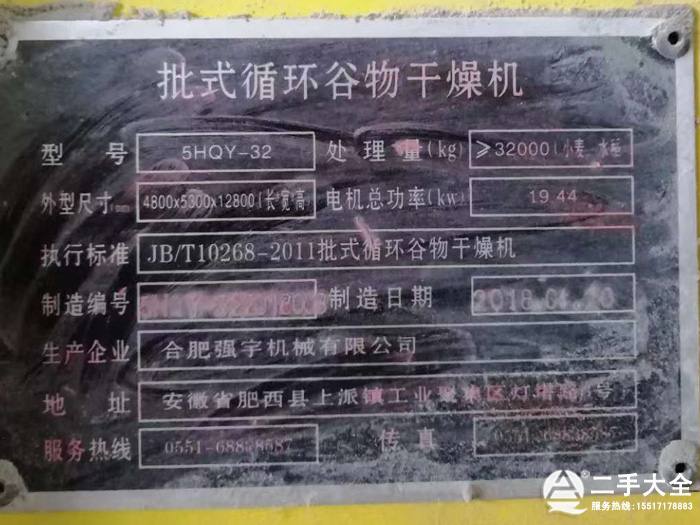 批式循环谷物干燥机
型 号 5HQY-32 处 理 量(kg) ≥32000(小麦、水稻
外型尺寸(mm) 4800x5300x12800(长宽高) 电机总功率(kw) 19.44
执行标准 JB/T10268-2011批式循环谷物干燥机
制造编号 制造日期 2018.04.
生产企业 合肥强宇机械有限公司
地 址 安徽省肥西县上派镇工业聚集区灯塔路 号
服务热线 0551-68838587 传 真 0551-68838585
二手大全
服务热线:15517178863